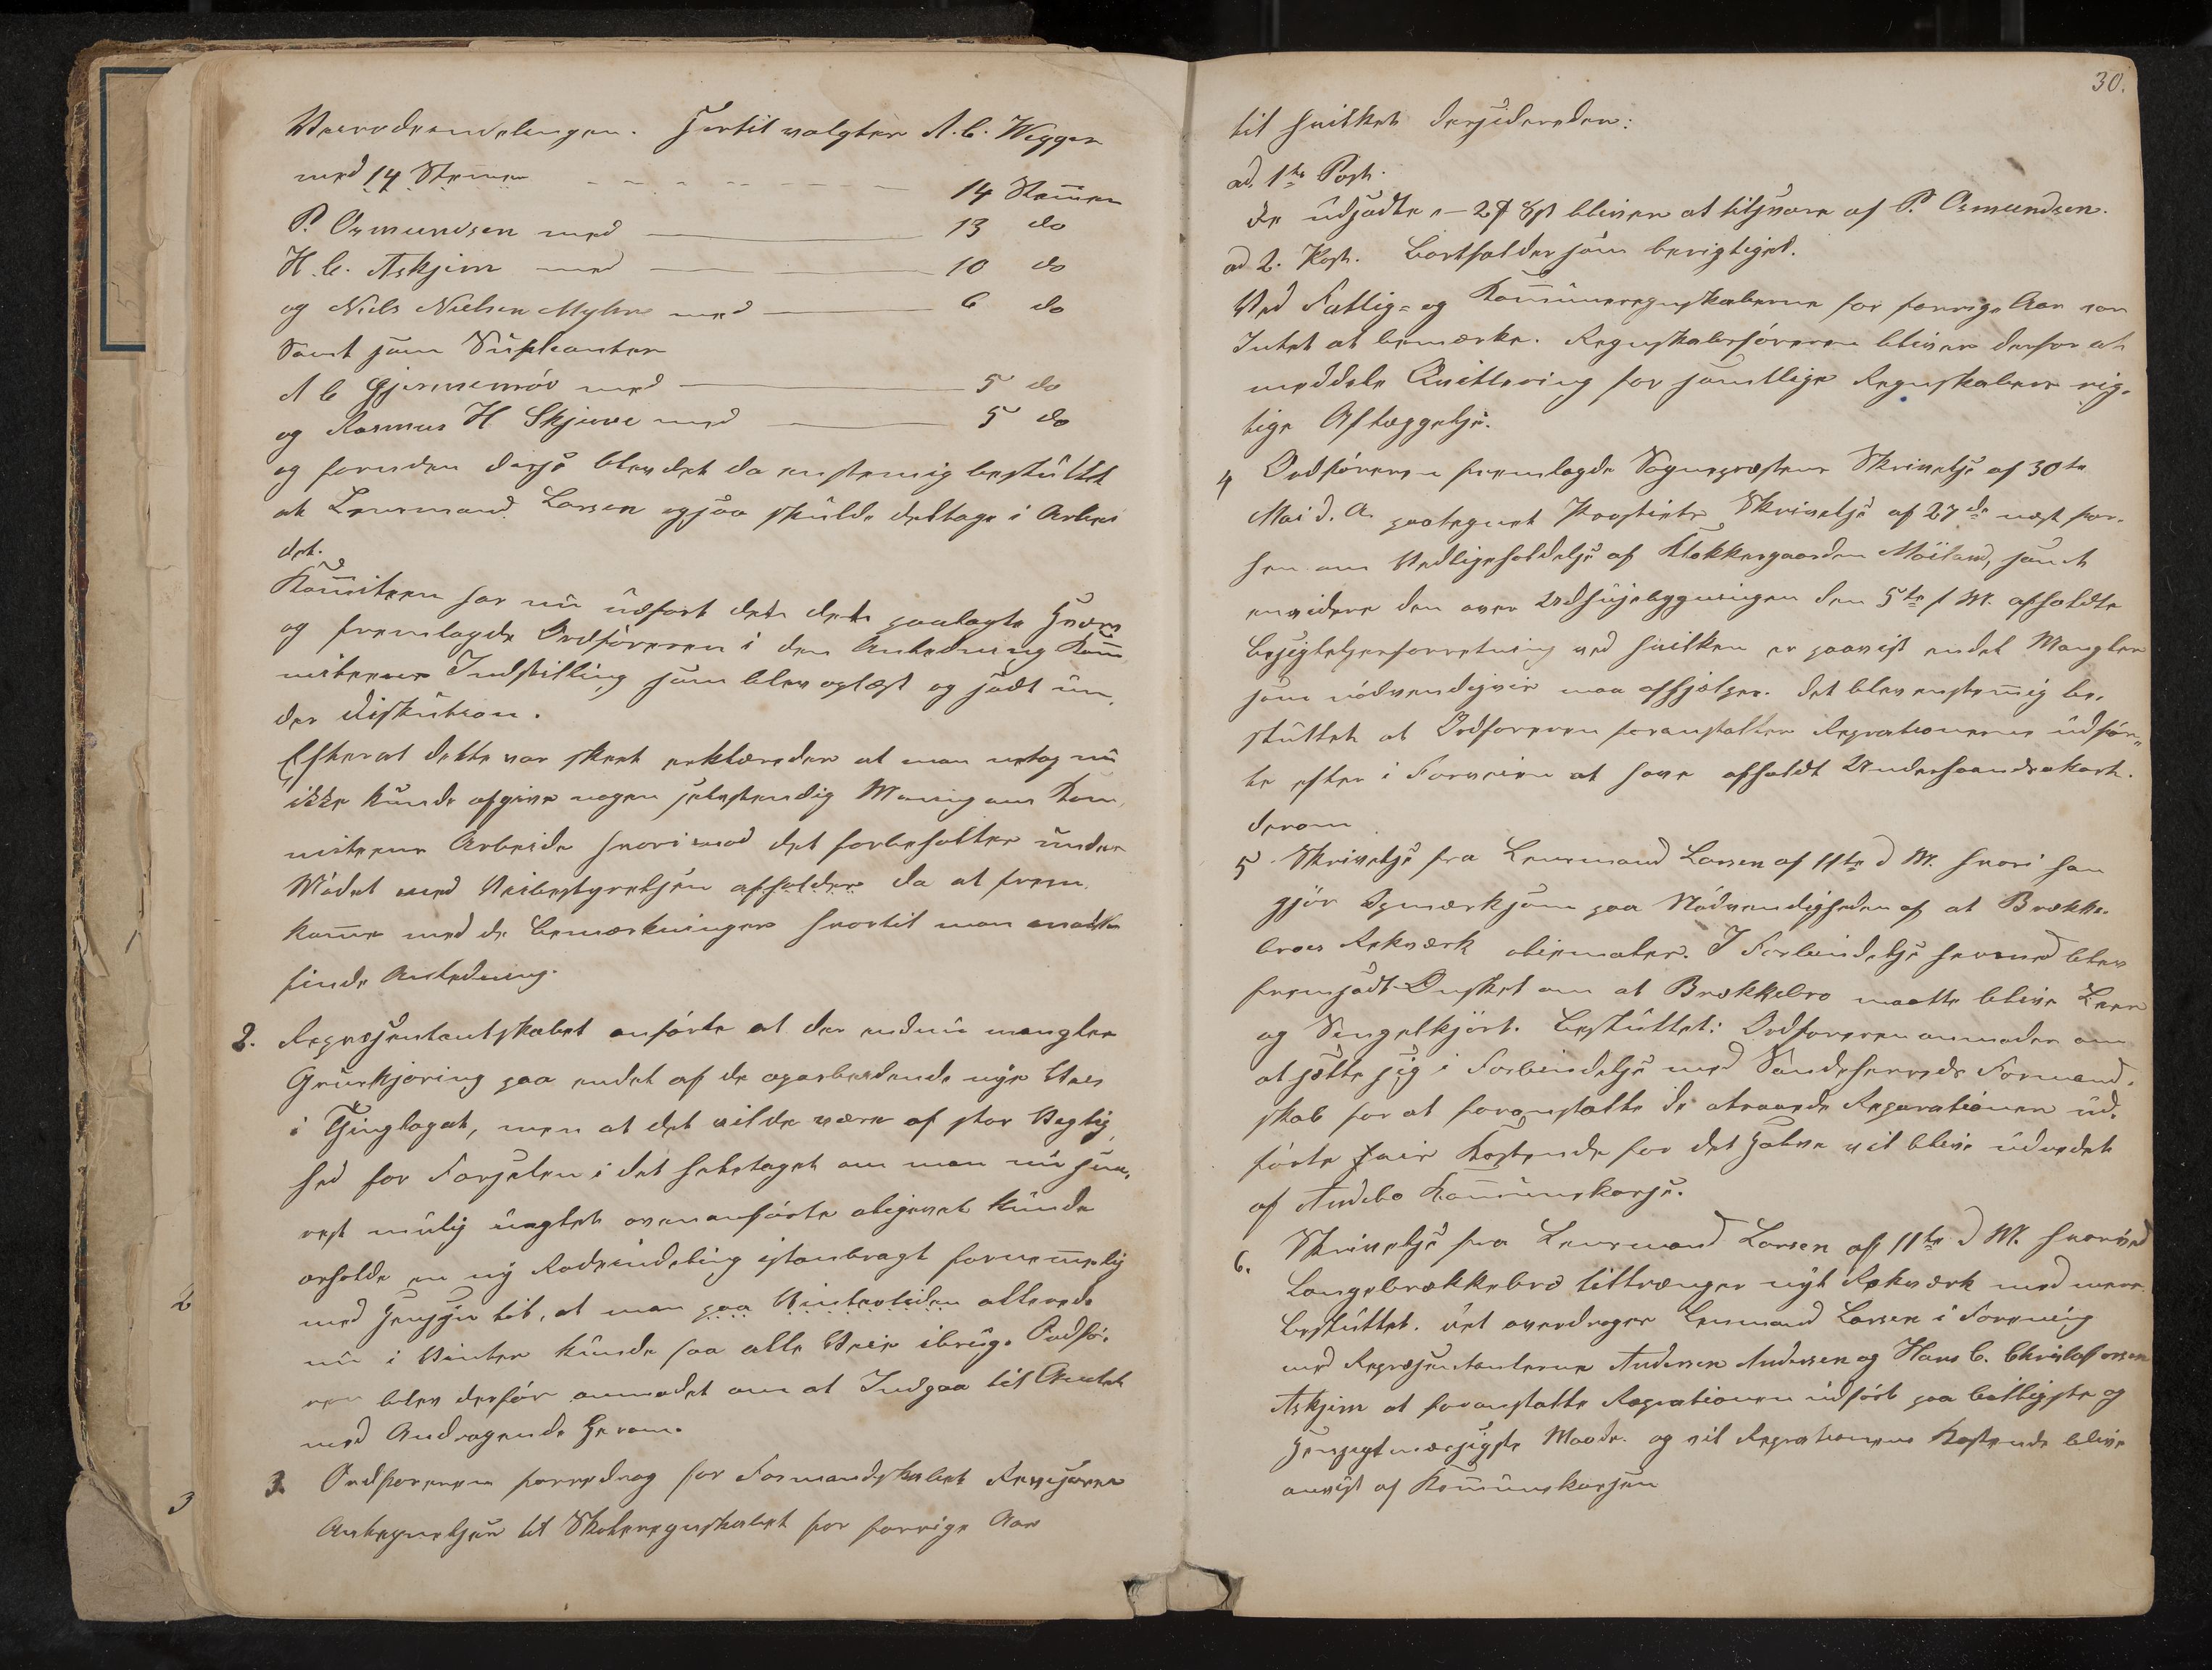 Hertil valgtes A. C. Wegger
med 14 Stemmer 14 Stemmer
P. Osmundsen med 13 do
H. C. Askjem med 10 do
og Niels Nielsen Myhre med 6 do
Samt som Supleanter
A C Gjermundrød med 5 do
og Rasmus H Skjeure med 5 do
og foruden disse blev det da enstemig besluttet
at Lensmand Larsen ogsaa skulde deltage i Arbei
det.
Komiteen har nu udført det dets paalagte Hverv
og fremlagde Ordføreren i den Anledning Kom
miteens Indstilling som blev oplæst og sadt un,
der Diskution.
Efterat dette var skeet erklæredes at man netop nu
ikke kunde afgive nogen selvstendig Mening om Kom,
miteens Arbeide hvorimod det forbeholtes under
Mødet med Veibestyrelsen afholdes da at frem,
komme med de Bemærkninger hvortil man maatte
finde Anledning.
2. Repræsentantskabet anførte at der endnu mangler
Gruskjøring paa endel af de oparbeidende nye Veie
i Thinglaget, men at det vilde være af stor Vegtig,
hed for Færselen i det heletaget om man nu snar,
rest mulig uagtet ovenanførte alligevel kunde
erholde en ny Rodeindeling istandbragt fornemmelig
med Hensyn til, at man paa Vintertiden allerede
nu i Vinter kunde faa alle Veie ibrug. Ordfø,
ren blev derfor anmodet om at Indgaa til Amtet
med Andragende herom.
3. Ordføreren foredrog for Formandskabet Revisorens
Antegnelser til Skoleregnskabet for forrige Aar
30.
til hvilket desideredes:
ad. 1ste Post.
De udsadte 2 β bliver at tilsvare af P. Osmundsen.
ad 2. Post. Bortfalder som berigtiget.
Ved Fattig= og Kommuneregnskaberne for forrige Aar var
Intet at bemærke. Regnskabsføreren bliver derfor at
meddele Qvittering for samtlige Regnskabers rig,
tige Aflæggelse.
4 Ordføreren fremlagde Sognepræstens Skrivelse af 30te
Mai d. A. paategnet Provstiets Skrivelse af 27de næst før,
hen om Vedligeholdelse af Klokkergaarden Møiland, samt
envidere den over Udhusebygningen den 5te f M. afholdte
Besigtelsesforretning ved hvilken er paavist endel Mangler
som nødvendigvis maa afhjælpes. Det blev enstemig be,
sluttet at Ordføreren foranstalter Reprationerne udfør,
te efter i Forveien at have afholdt Underhaandsakort
derom
5. Skrivelse fra Lensmand Larsen af 11te d M. hvori han
gjør Opmærksom paa Nødvendigheden af at Brække,
broes Rekværk obiemales. I Forbindelse hermed blev
fremsadt Ønsket om at Brækkebro maatte blive Leer
og Singelkjørt. Besluttet: Ordføreren anmodes om
at sætte sig i Forbindelse med Sandeherreds Formand,
skab for at foranstalte de atraaede Reparationer ud,
førte hvis Kostende for det Halve vil blive udredet
af Andebo Kommunekasse.
6. Skrivelse fra Lensmand Larsen af 11te d M. hvorved
Langebrækkebro tiltrænger nyt Rekværk med mere.
Besluttet. det overdrages Lensmand Larsen i Forening
med Repræsentanterne Andersen Andersen og Hans C. Christoffersen
Askjem at foranstalte Reprationen udført paa billigste og
Hensigtmæssigste Maade. og vil Reprationens Kostende blive
anvist af Kommunekassen